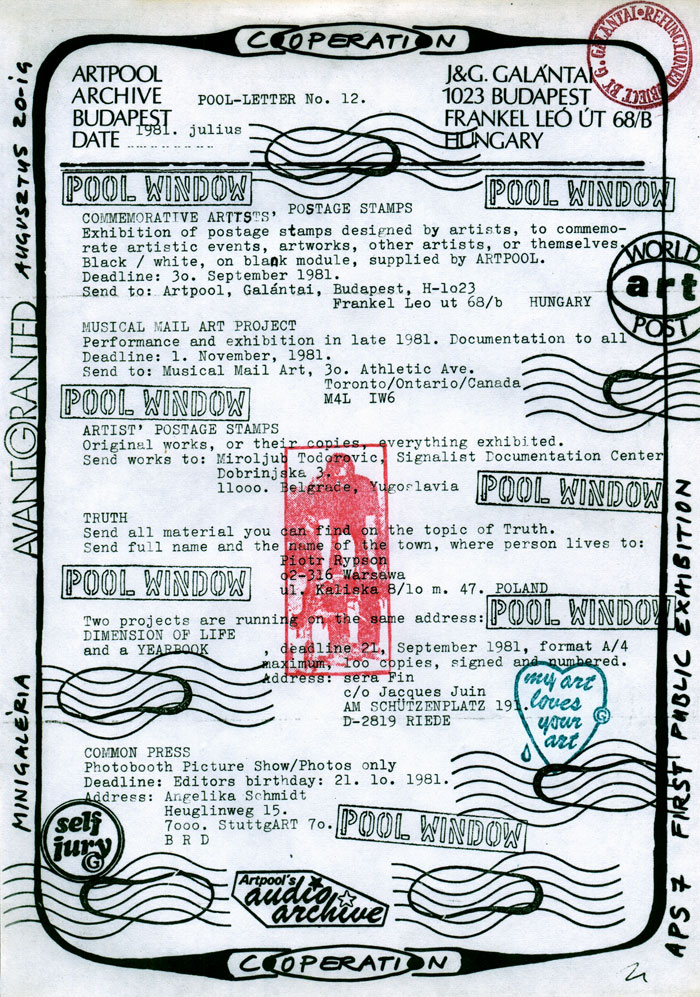 COOPERATION
ARTPOOL
ARCHIVE
BUDAPEST
DATE 1981. julius
POOL-LETTER No. 12.
J&G. GALÁNTAI
1023 BUDAPEST
FRANKEL LEÓ ÚT 68/B
HUNGARY
G. GALÁNTAI • REFUNCTIONED
BY
POOL WINDOW
POOL WINDOW
COMMEMORATIVE ARTISTS' POSTAGE STAMPS
Exhibition of postage stamps designed by artists, to commemo-
rate artistic events, artworks, other artists, or themselves.
Black / white, on blank module, supplied by ARTPOOL.
Deadline: 3o. September 1981.
Send to: Artpool, Galántai, Budapest, H-1o23
Frankel Leo ut 68/b HUNGARY
WORLD
art
POST
MUSICAL MAIL ART PROJECT
Performance and exhibition in late 1981. Documentation to all
Deadline: 1. November, 1981.
Send to: Musical Mail Art, 3o. Athletic Ave.
Toronto/Ontario/Canada
M4L IW6
POOL WINDOW
ARTIST' POSTAGE STAMPS
Original works, or their copies, everything exhibited.
Send works to: Miroljub Todorovic, Signalist Documentation Center
Dobrinjska 3.
11ooo. Belgrade, Yugoslavia
POOL WINDOW
TRUTH
Send all material you can find on the topic of Truth.
Send full name and the name of the town, where person lives to:
Piotr Rypson
o2-316 Warsawa
ul. Kaliska 8/1o m. 47. POLAND
POOL WINDOW
POOL WINDOW
Two projects are running on the same address:
DIMENSION OF LIFE
and a YEARBOOK , deadline 21, September 1981, format A/4
maximum, 1oo copies, signed and numbered.
Address: sera Fin
c/o Jacques Juin
AM SCHÜTZENPLATZ 191.
D-2819 RIEDE
my art
loves
your
art
G
COMMON PRESS
Photobooth Picture Show/Photos only
Deadline: Editors birthday: 21. 1o. 1981.
Address: Angelika Schmidt
Heuglinweg 15.
7ooo. StuttgART 7o.
B R D
POOL WINDOW
self
jury
G
Artpool's
audio
archive
COOPERATION
MINIGALÉRIA AVANTGRANTED AUGUSZTUS 20-ig
APS 7 FIRST PUBLIC EXHIBITION